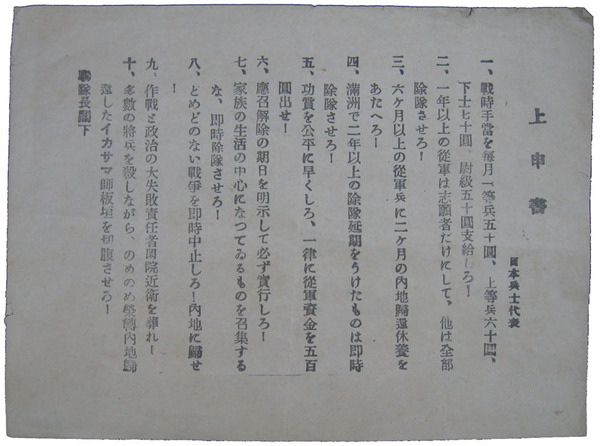 上申書
日本兵士代表
一、戰時手當を每月一等兵五十圓、上等兵六十圓、
下士七十圓、尉級五十圓支給しろ!
二、一年以上の從軍は志願者だけにして、他は全部
除隊させろ!
三、六ケ月以上の從軍兵に二ケ月の內地歸還休養を
あたへろ!
四、滿洲で二年以上の除隊延期をうけたものは卽時
除隊させろ!
五、功賞を公平に早くしろ、一律に從軍資金を五百
圓出せ!
六、應召解除の期日を明示して必ず實行しろ!
七、家族の生活の中心になつてゐるものを召集する
な、卽時除隊させろ!
八、とめどのない戰爭を卽時中止しろ!內地に歸せ
!
九、作戰と政治の大失敗責任者閑院近衞を葬れ!
十、多數の將兵を殺しながら、のめのめ榮轉內地歸
還したイカサマ師板垣を切腹させろ!
聯隊長閣下